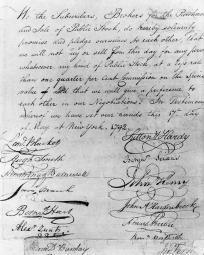 We the Subscribers, Brokers for the Purchase
and Sale of Public Stock, do hereby solemnly
promise and pledge ourselves to each other, that
we will not buy or sell from this day for any person
whatsoever any kind of Public Stock, at a less rate
than one quarter per Cent Commission on the Specie
value of and that we will give a preference to
each other in our Negotiations. In Testimony
whereof we have set our hands this 17th day
of May at New York. 1792.
Leo. Bleecker
Hugh Smith
Armstrong & Barnewall
Bernard Hart
Alexr Zuntz
Sutton & Hardy
Benjn Seixas
John Henry
John A. Hardenbrook
Samuel Beebe